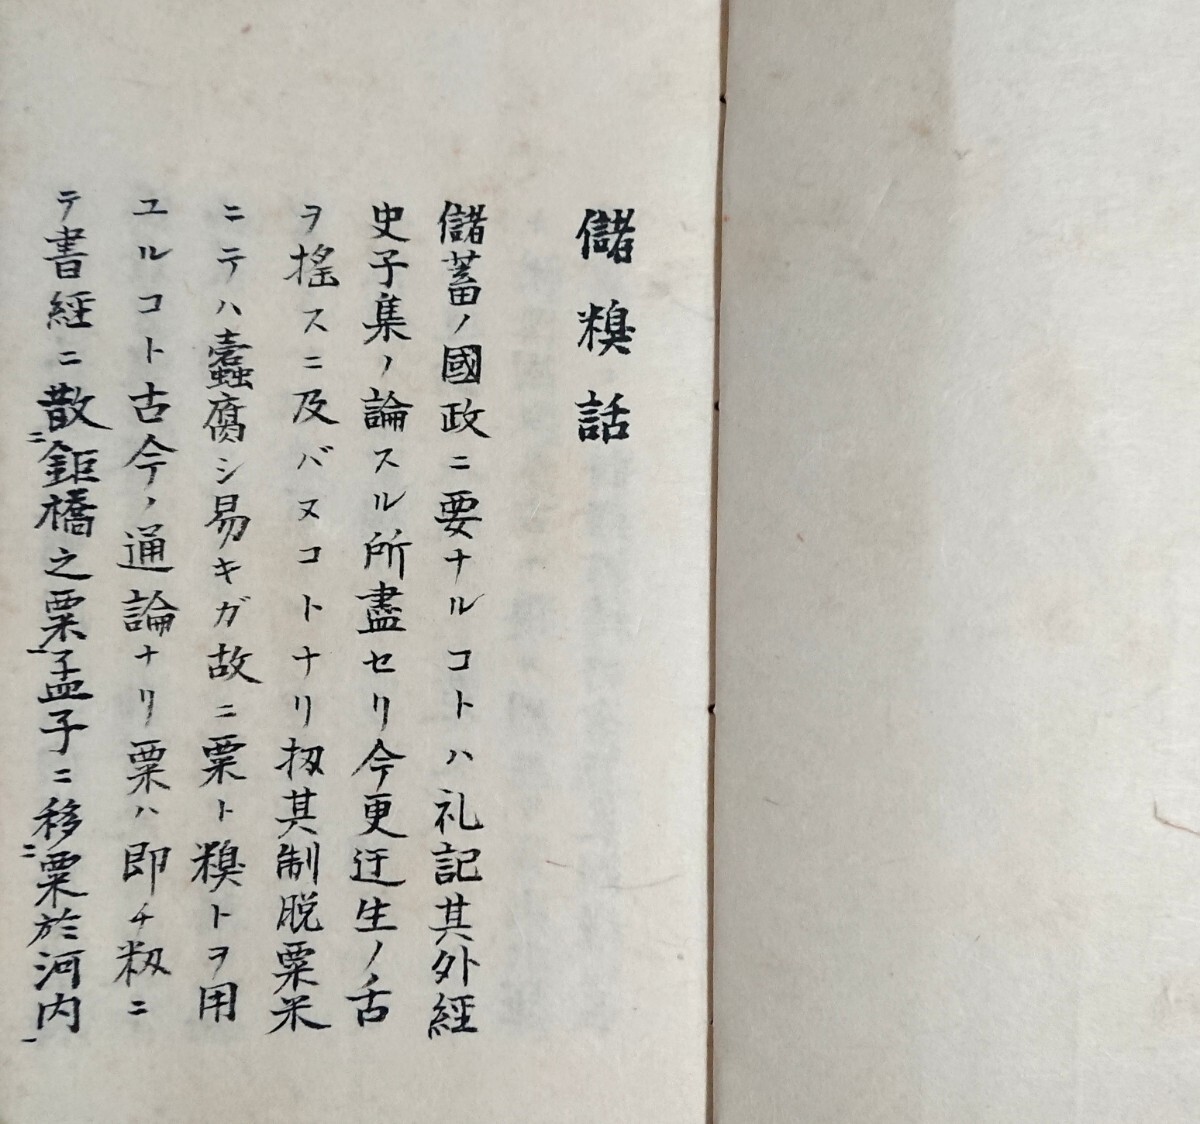 儲糗話
儲蓄ノ國政ニ要ナルコトハ礼記其外經
史子集ノ論スル所盡セリ今更迂生ノ舌
ヲ搖スニ及バヌコトナリ扨其制脱粟米
ニテハ蠹腐シ易キガ故ニ粟ト糗トヲ用
ユルコト古今ノ通論ナリ粟ハ即チ籾ニ
テ書經ニ散ニ鉅橋之粟一孟子ニ移ニ粟於河内一